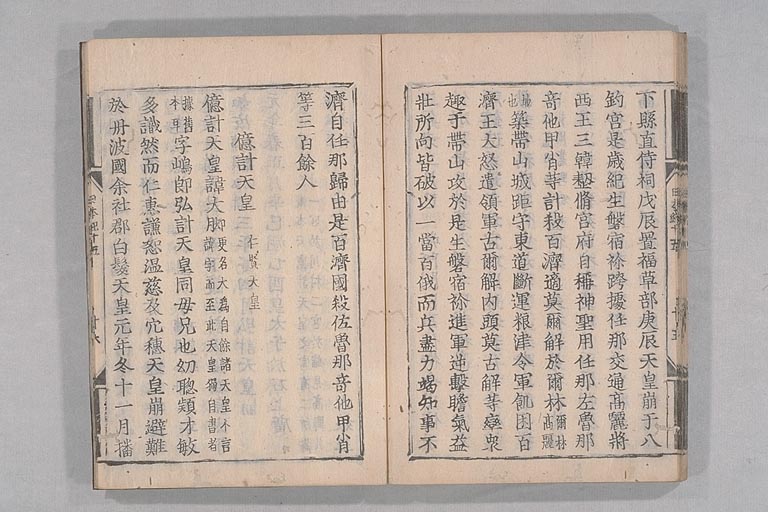 下縣直侍祠戊辰置福草部庚辰天皇崩于八
釣宮是歲紀生磐宿祢跨據任那交通髙麗將
西王三韓整脩宮府自稱神聖用任那左魯那
竒他甲肖等計殺百濟適莫爾解於爾林爾林髙麗
地也築帶山城距守東道斷運粮津令軍飢困百
濟王大怒遣領軍古爾解内頭莫古解等率衆
趣于帶山攻於是生磐宿祢進軍逆擊膽氣益
壯所向皆破以一當百俄而兵盡力竭知事不
濟自任那歸由是百濟國殺佐魯那竒他甲肖
等三百餘人
億計天皇 仁賢天皇
億計天皇諱大脚即更名大為自餘諸天皇不言諱字而至此天皇獨自書者
據舊本耳字嶋郎弘計天皇同母兄也幼聰穎才敏
多識然而仁惠謙恕温慈及穴穗天皇崩避難
於丹波國余社郡白髮天皇元年冬十一月播